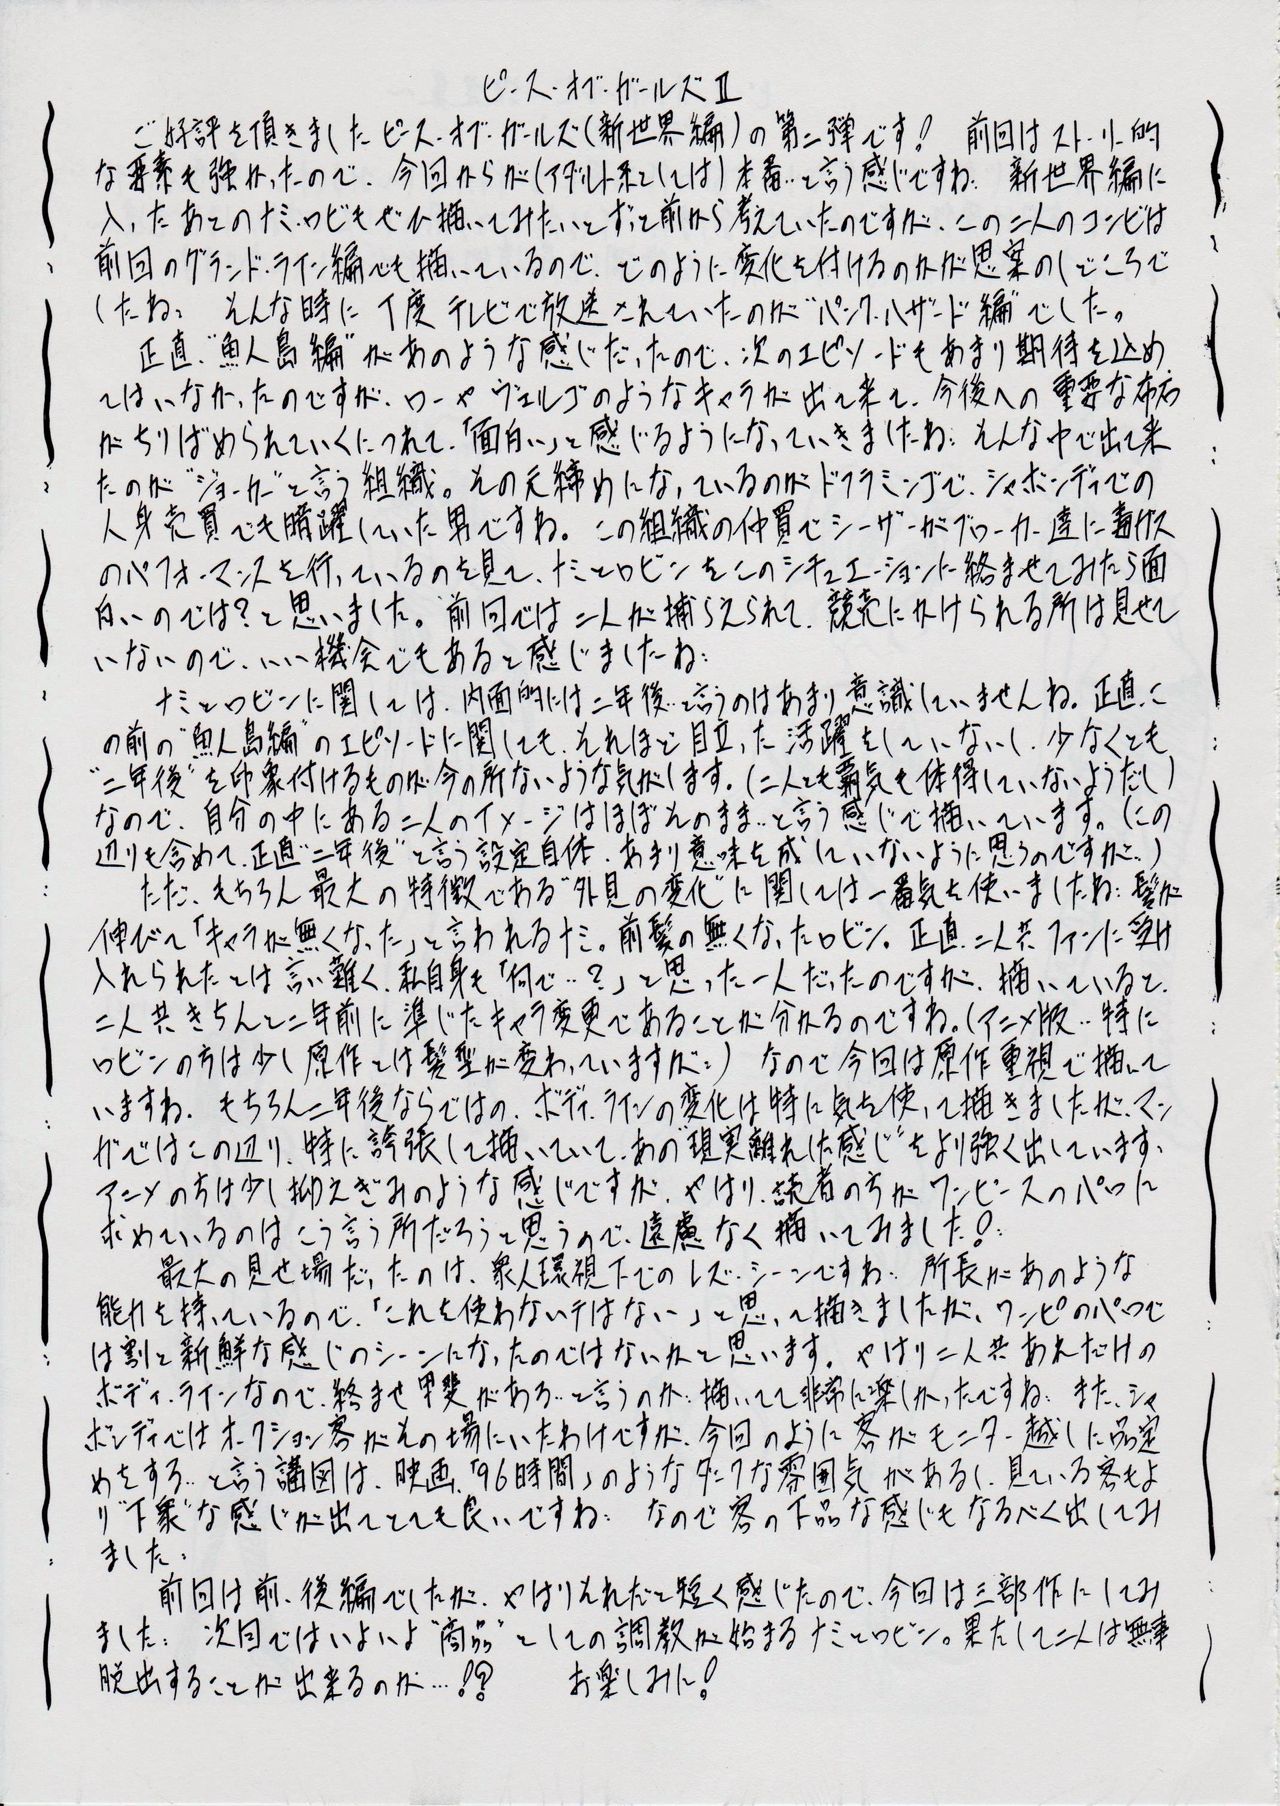 ピース・オブ・ガールズⅡ
ご好評を頂きましたピース・オブ・ガールズ(新世界編)の第二弾です! 前回はストーリー的
な要素も強かったので、今回からが(アダルト系としては)本番‥と言う感じですね‥ 新世界編に
入ったあとのナミ・ロビもぜひ描いてみたいとずっと前から考えていたのですが、この二人のコンビは
前回のグランド・ライン編でも描いているので、どのように変化を付けるのかが思案のしどころで
したね‥ そんな時に丁度テレビで放送されていたのが"パンク・ハザード編"でした。
正直、"魚人島編"があのような感じだったので、次のエピソードもあまり期待を込め
てはいなかったのですが、ローやヴェルゴのようなキャラが出て来て、今後への重要な布石
がちりばめられていくにつれて、「面白い」と感じるようになっていきましたね‥そんな中で出て来
たのが"ジョーカー"と言う組織。その元締めになっているのがドフラミンゴで、シャボンディでの
人身売買でも暗躍していた男ですね。この組織の仲買でシーザーがブローカー達に毒ガス
のパフォーマンスを行っているのを見て、ナミとロビンをこのシチュエーションに絡ませてみたら面
白いのでは?と思いました。前回では二人が捕らえられて、競売にかけられる所は見せて
いないので、いい機会でもあると感じましたね‥
ナミとロビンに関しては、内面的には二年後‥と言うのはあまり意識していませんね。正直、こ
の前の"魚人島編"のエピソードに関しても、それほど目立った活躍をしていないし、少なくとも
"二年後"を印象付けるものが今の所ないような気がします。(二人とも覇気も体得していないようだし)
なので、自分の中にある二人のイメージはほぼそのまま‥と言う感じで描いています。(この
辺りも含めて、正直"二年後"と言う設定自体、あまり意味を成していないように思うのですが‥)
ただ、もちろん最大の特徴である"外見の変化"に関しては一番気を使いましたね‥髪が
伸びて「キャラが無くなった」と言われるナミ。前髪の無くなったロビン。正直、二人共ファンに受け
入れられたとは言い難く、私自身も「何で‥?」と思った一人だったのですが、描いていると、
二人共きちんと二年前に準じたキャラ変更であることが分かるのですね。(アニメ版‥特に
ロビンの方は少し原作とは髪型が変わっていますが‥) なので今回は原作重視で描いて
いますね。もちろん二年後ならではの、ボディ・ラインの変化は特に気を使って描きましたが、マン
ガではこの辺り、特に誇張して描いていて、あの"現実離れした感じ"をより強く出しています、
アニメの方は少し抑えぎみのような感じですが、やはり、読者の方がワンピースのパロに
求めているのはこう言う所だろうと思うので、遠慮なく描いてみました!‥
最大の見せ場だったのは、衆人環視下でのレズ・シーンですね‥ 所長があのような
能力を持っているので、「これを使わないテはない」と思って描きましたが、ワンピのパロで
は割と新鮮な感じのシーンになったのではないかと思います。やはり二人共あれだけの
ボディ・ラインなので、絡ませ甲斐がある‥と言うのか‥描いてて非常に楽しかったですね‥ また、シャ
ボンディではオークション客がその場にいたわけですが、今回のように客がモニター越しに品定
めをする‥と言う構図は、映画、「96時間」のようなダークな雰囲気があるし、見ている客もよ
り"下衆"な感じが出てとても良いですね‥ なので客の下品な感じもなるべく出してみ
ました、
前回は前、後編でしたが、やはりそれだと短く感じたので、今回は三部作にしてみ
ました‥ 次回ではいよいよ"商品"としての調教が始まるナミとロビン。果たして二人は無事
脱出することが出来るのか…!? お楽しみに!